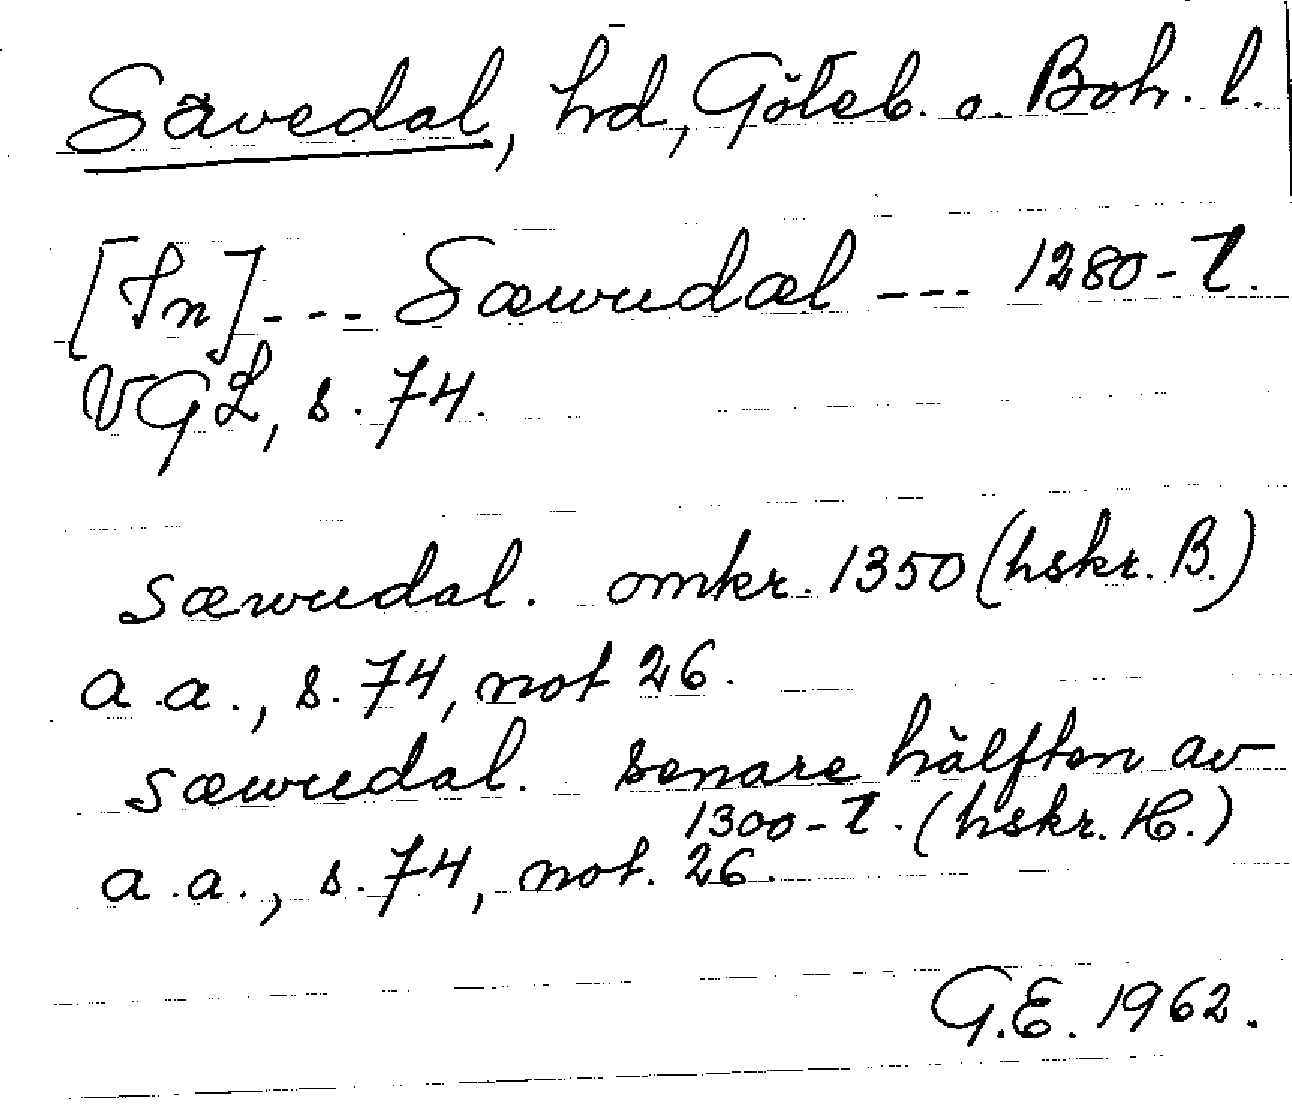 Sävedal, hd, Göteb. o. Boh. l.
[In] --- Sæwudæl --- 1280-t.
VGL, s. 74.
sæwudal. omkr. 1350 (hskr. B.)
a.a., s. 74, not 26.
sæwudal. senare hälften av
1300-t. (hskr. H.)
a.a., s. 74, not. 26.
G.E. 1962.